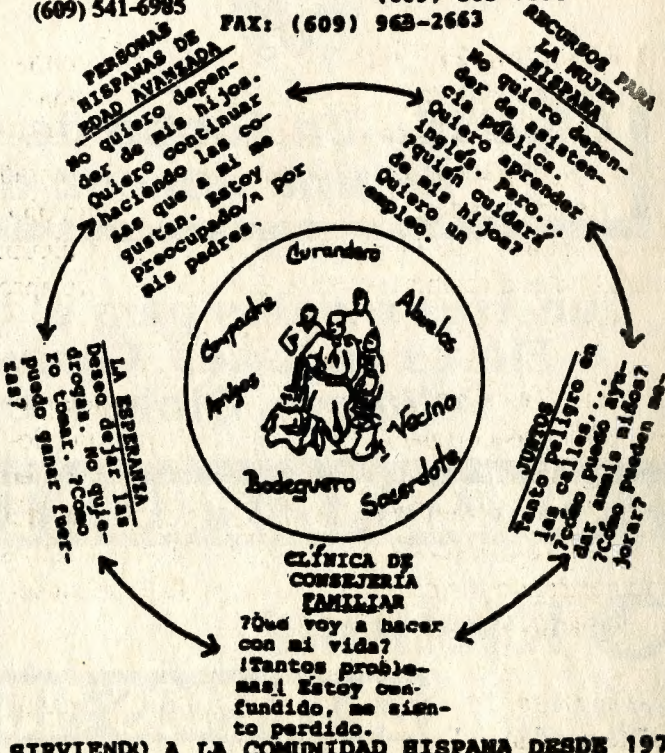 (609) 541-6985
FAX: (609) 963-2663
PERSONAS
HISPANAS DE
EDAD AVANZADA
No quiero depen-
der de mis hijos.
Quiero continuar
haciendo las co-
sas que a mi me
gustan. Estoy
preocupado/a por
mis padres.
RECURSOS PARA
LA MUJER
HISPANA
No quiero depen-
der de asisten-
cia pública.
Quiero aprender
inglés. Pero...
?quién cuidará
de mis hijos?
Quiero un
empleo.
Curandero
Compadre
Abuelos
Amigos
Vecino
Bodeguero
Sacerdote
LA ESPERANZA
Deseo dejar las
drogas. No quie-
ro tomar. ?Cómo
puedo ganar fuer-
zas?
JUNTOS
Tanto peligro en
las calles,...
?cómo puedo ayu-
dar amis niños?
?Cómo pueden me-
jorar?
CLÍNICA DE
CONSEJERÍA
FAMILIAR
?Qué voy a hacer
con mi vida?
!Tantos proble-
mas¡ Estoy con-
fundido, me sien-
to perdido.
SIRVIENDO A LA COMUNIDAD HISPANA DESDE